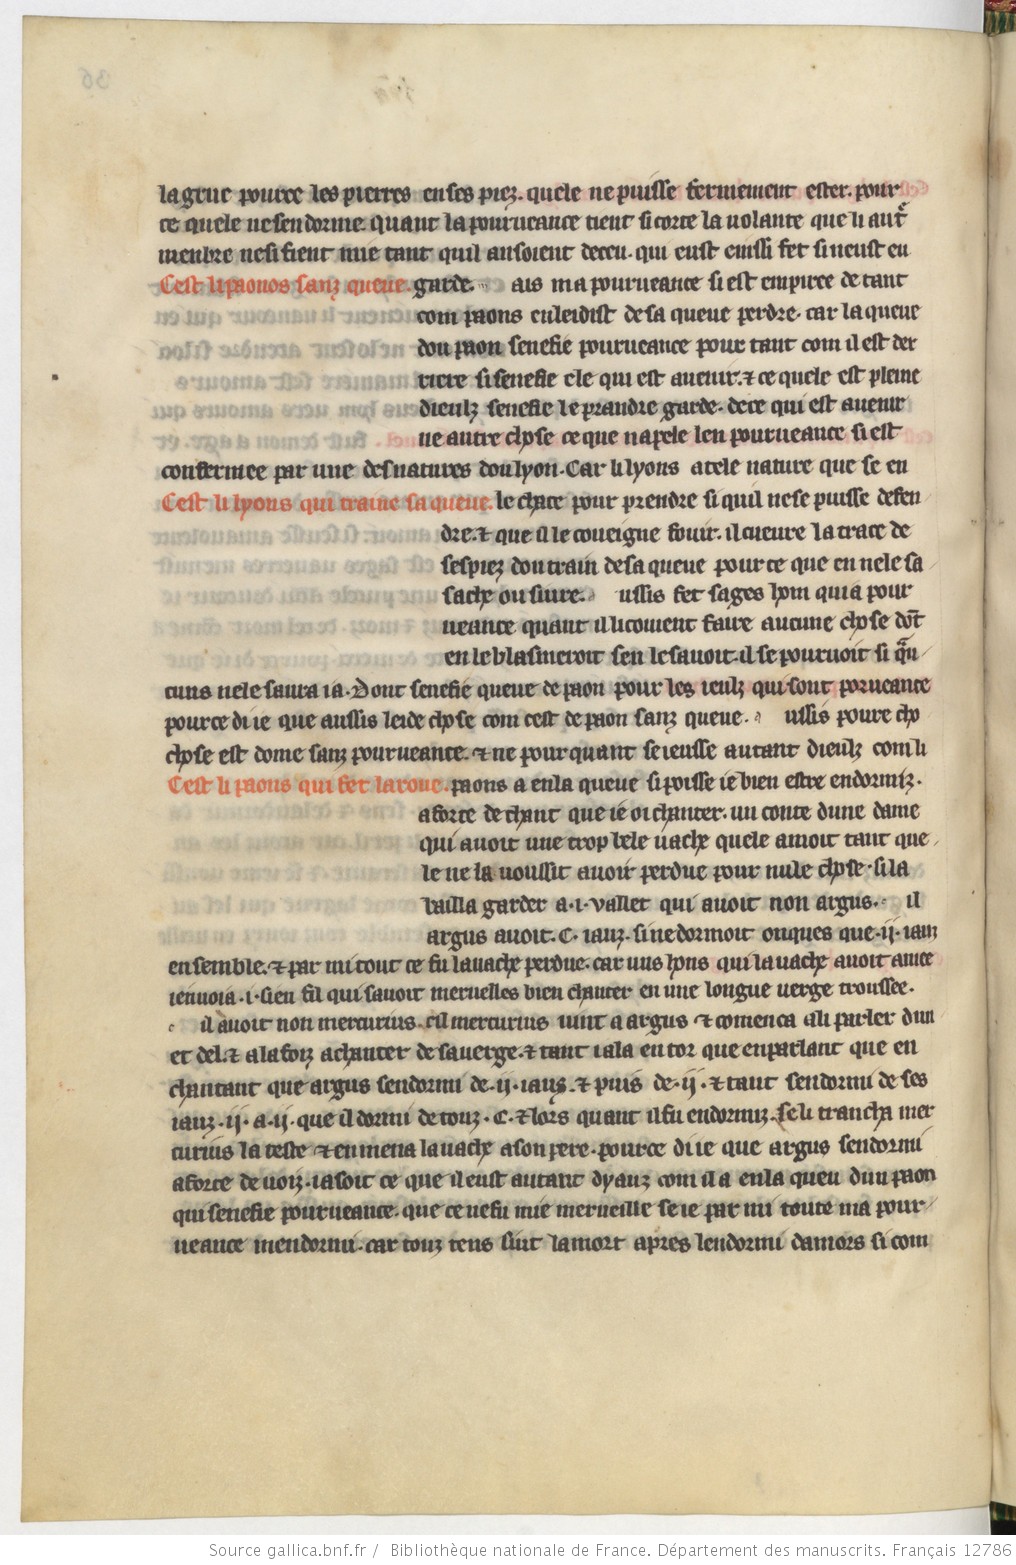 la grue pource les pierres en ses piez. quele ne puisse fermement ester. pour
ce quele ne sendorme. quant la pourueance tient si corte la uolante que li autr̃
menbre ne si fient mie tant quil ausoient deceu. qui eust einssi fet si neust eu
Cest li paonos sanz queue. garde. ais ma pourueance si est empiree de tant
com paons enleidist de sa queue perdre. car la queue
dou paon senefie pourueance pour tant com il est der
riere si senefie ele qui est auenir. ⁊ ce quele est pleine
dieulz senefie le prandre garde. de ce qui est auenir
ne autre chose ce que napele len pourueance si est
confermee par une des natures dou lyon. Car li lyons a tele nature que se en
Cest li lyons qui traine sa queue. le chace pour prendre si quil ne se puisse defen
dre. ⁊ que il le coueigne fouir. il cueure la trace de
ses piez dou train de sa queue pour ce que en ne le sa
sache ou siure. ussis fet sages hom qui a pour
ueance quant il li couient faire aucune chose dōt
en le blasmeroit sen le sauoit. il se pouruoit si q̃u
cuns ne le saura ia. Dont senefie queue de paon pour les ieulz qui sont porueance
pource di ie que aussis leide chose com cest de paon sanz queue. ussis poure cho
chose est dome sanz pourueance. ⁊ ne pour quant se ieusse autant dieulz com li
Cest li paons qui fet la roue. paons a en la queue si poisse ie bien estre endormiz.
a force de chant que ie oi chanter. un conte dune dame
qui auoit une trop bele uache quele amoit tant que
le ne la uoussit auoir perdue pour nule chose. si la
bailla garder a .i. vallet qui auoit non argus. il
argus auoit .C. iauz. si ne dormoit onques que .ii. iauz
ensemble. ⁊ par mi tout ce fu la uache perdue. car uns hons qui la uache auoit amee
i enuoia .i. sien fil qui sauoit merueilles bien chanter en une longue uerge troussee.
il auoit non mercurius. cil mercurius uint a argus ⁊ comenca a li parler dun
et del. ⁊ a la foiz a chanter de sa uerge. ⁊ tant i ala entor que en parlant que en
chantant que argus sendormi de .ii. iauz. ⁊ puis de .ii. ⁊ tant sendormi de ses
iauz .ii. a .ii. que il dormi de touz .C. ⁊ lors quant il fu endormiz. se li trancha mer
curius la teste ⁊ en mena la uache a son pere. pource di ie que argus sendormi
a force de uoiz. ia soit ce que il eust autant dyauz com il a en la queu dun paon
qui senefie pourueance. que ce ne fu mie merueille se ie par mi toute ma pour
ueance mendormi. car touz tens suit la mort apres lendormi damors si com
Source gallica.bnf.fr / Bibliothèque nationale de France. Département des manuscrits. Français 12786